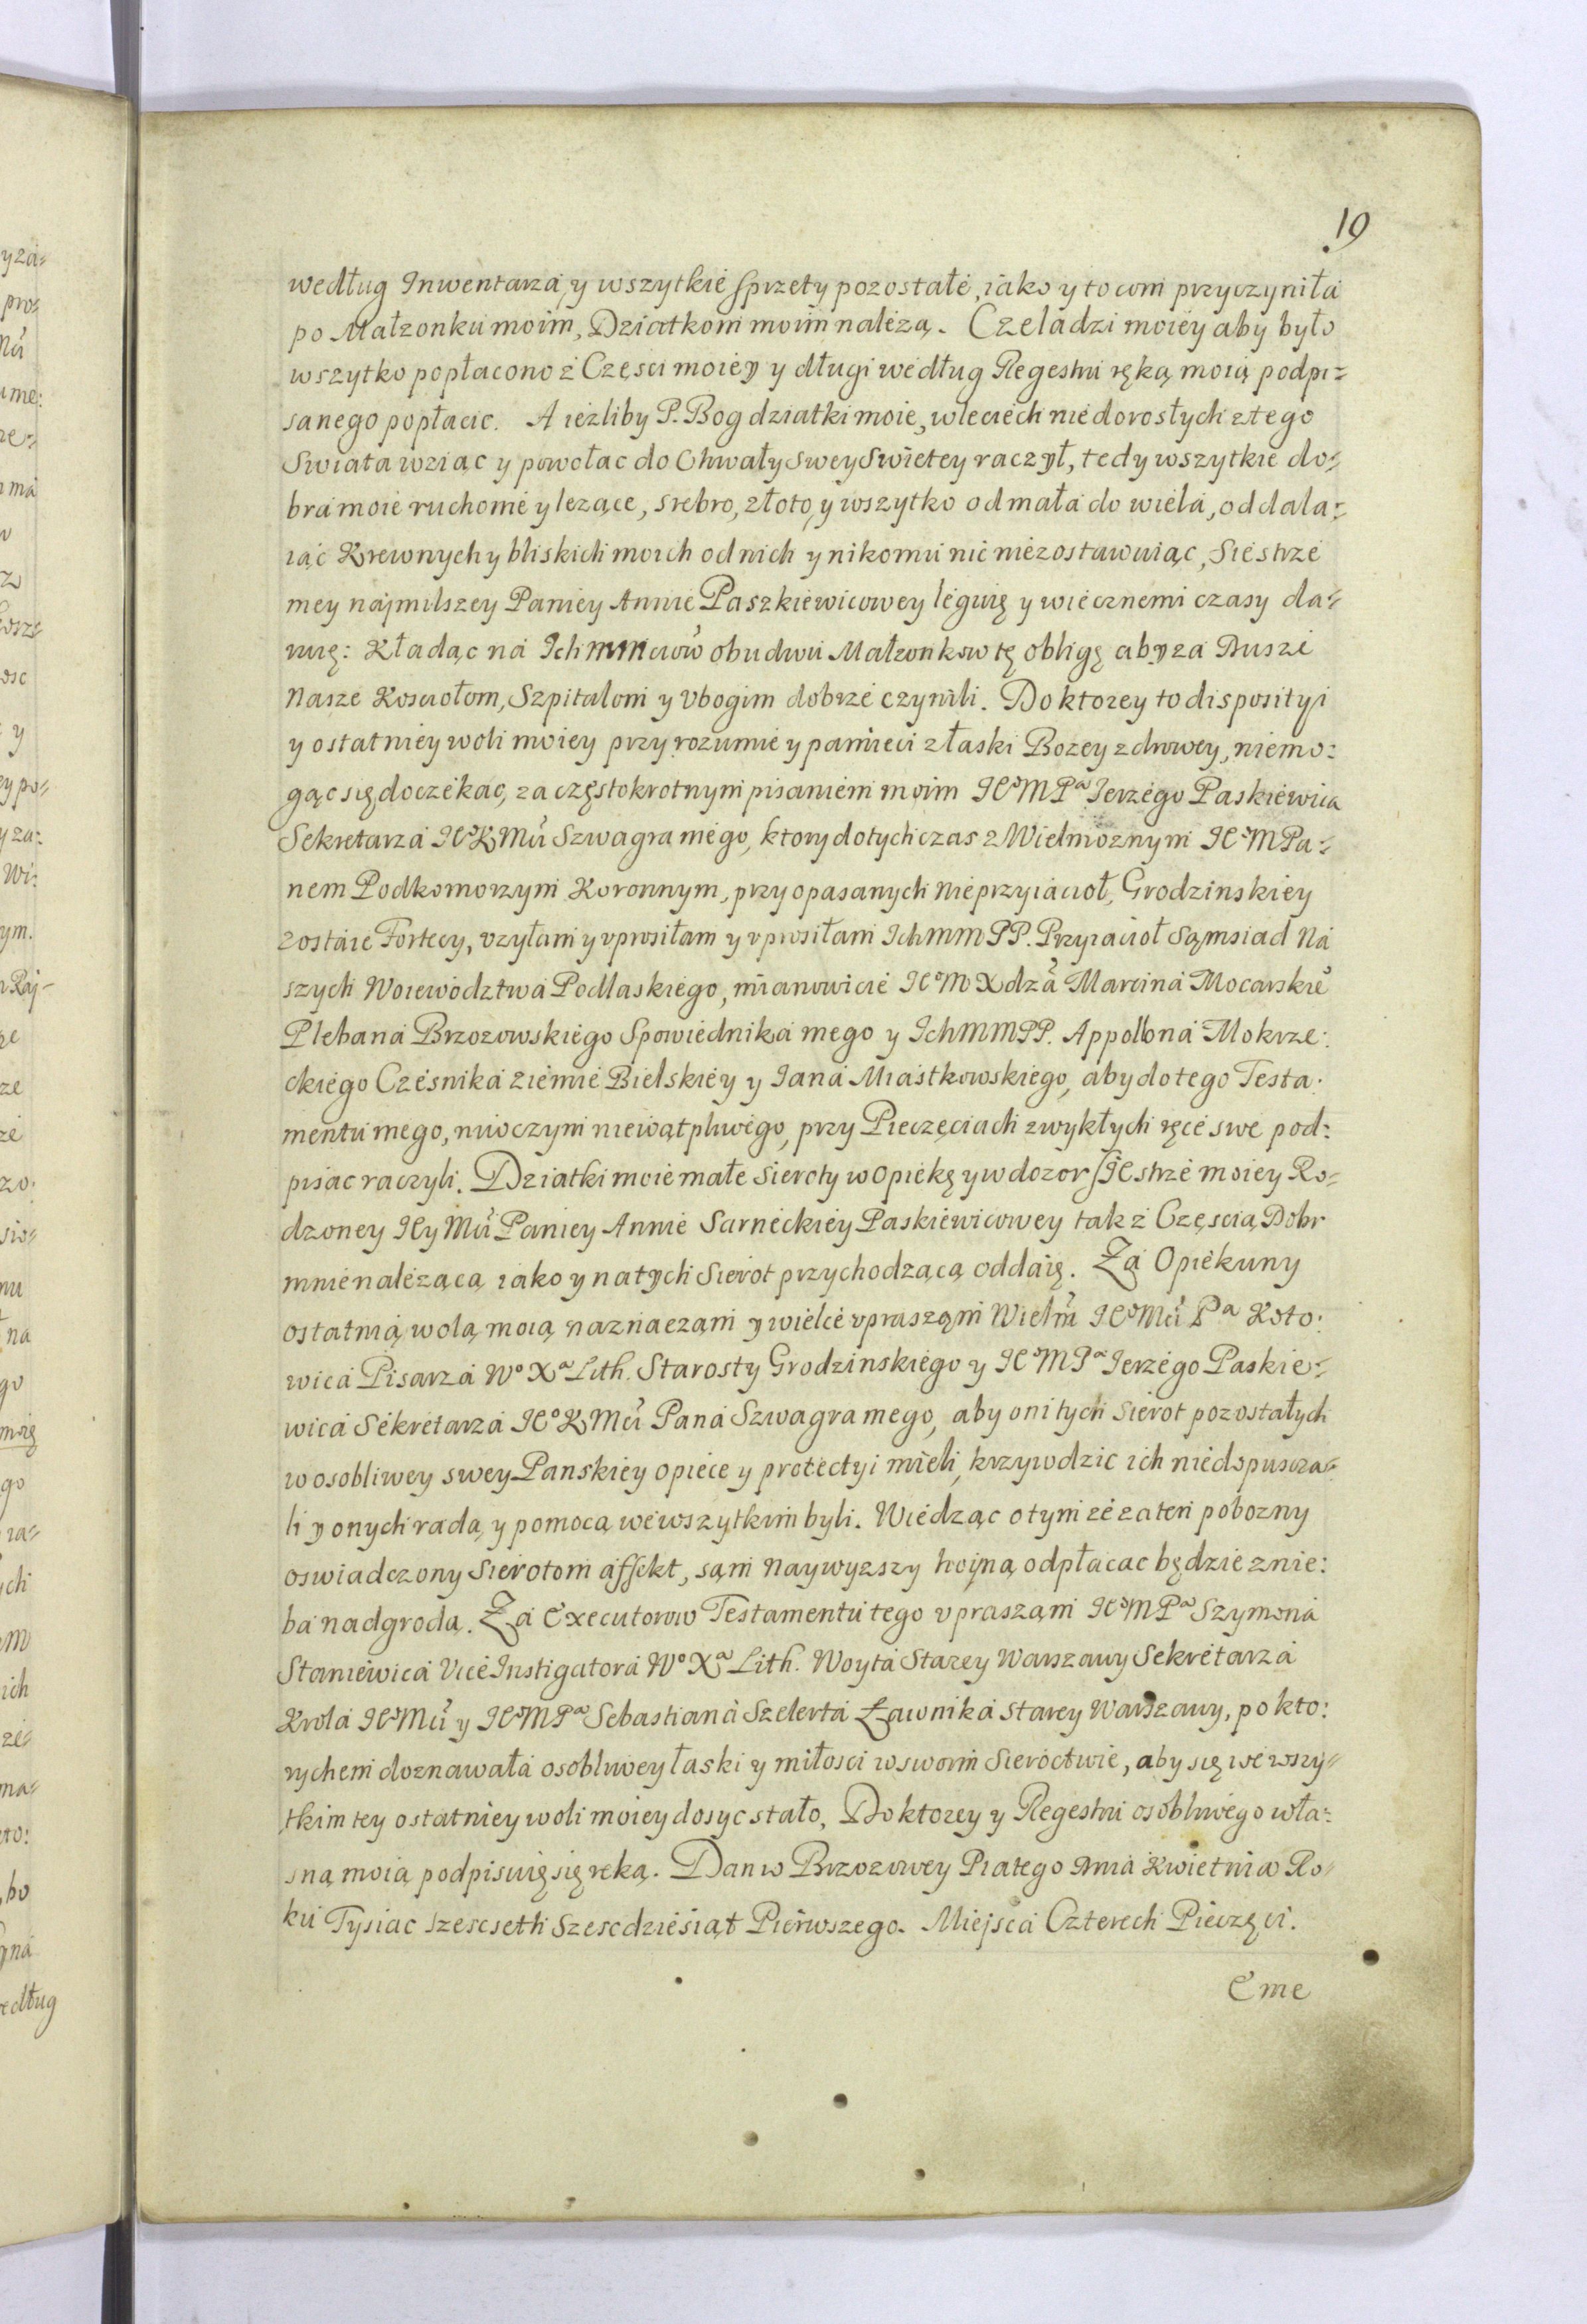 19
według Inwentarzá, y wszytkie sprzety pozostałé, iáko y to com przyczyniłá
po Małzonku moim, Dziatkom moim nalézą. Czeladzi moiéy aby było
wszytko popłacono z Częsci moiéy y długi według Regestru ręką moią podpi=
sanego popłacic. A iézliby P. Bog dziatki moie, w lećiéch niédorosłych z tego
Swiata wziąc y powołac do Chwały swey Swietey raczył, tedy wszytkie do=
brá moie ruchomé y lezące, srebro, złoto, y wszytko od małá do wielá, oddala=
iąć Krewnych y bliskich moich od nich y nikomu nić niézostawuiąc, Siéstrzé
mey náymilszey Paniey Annié Paszkiéwicowey léguię y wiécznemi czasy da=
ruię: Kładąc ná Ich mmciow obudwu Małzonkow tę obligę aby zá Duszé
Nasze Kosciołom, Szpitalom y Vbogim dobrzé czynili. Do ktorey to disposityi
y ostatniéy woli moiey przy rozumié y pamięci z łaski Bozey zdrowey, niémo=
gąc się doczékac, za częstokrotnym pisaniém moim JeoMPa Jerzégo Paskiéwica
Sekretarzá JeoKMći Szwagra mégo, ktory dotychczas z Wielmoznym JeoMPa=
nem Podkomorzym Koronnym, przy opasanych niéprzyiacioł, Grodzinskiéy
zostáie Fortecy, vzyłam y vprosiłam y vprosiłam Ich mm PP. Przyiacioł Sąmsiad Ná
szych Woiewództwá Podlaskiégo, mianowicié JeoM Xdzá Marciná Mocarskié
Plebaná Brzozowskiégo Spowiédniká mego y Ich mm PP. Appolloná Mokrze=
ckiégo Czésniká ziémié Biélskiéy y Janá Miástkowskiégo, aby do tego Testa=
mentu mego, niwczym niewątpliwégo, przy Pieczęciach zwykłych ręcé swe pod=
pisac raczyli. Dziatki moié małe Sieroty w Opiékę y w dozor Siestrzé moiey Ro=
dzoney Jey Mći Paniey Annié Sarnéckiéy Paskiéwicowey tak z Częscią Dobr
mnié nalézącą iako y na tych Siérot przychodzącą oddaię. Zá Opiékuny
ostatnią wolą moią náznaczám y wielcé vpraszám Wielm JeoMći Pa Koto=
wicá Pisarzá Wo Xa Lith. Starosty Grodzinskiégo y JeoMPa Jerzégo Paskié=
wicá Sékrétarzá JeoKMći Paná Szwagra mego, aby oni tych Siérot pozostałych
w osobliwey swey Panskiéy opiécé y protectyi miéli, krzywdzic ich niédopuscza=
li y onych radą y pomocą wé wszytkim byli. Wiédząc o tym zé zá teń pobozny
oswiadczony Siérotom affekt, sąm Naywyzszy hoyną odpłacac będzié z nie=
bá nadgrodą. Zá Executorow Testamentu tego vpraszám JeoMPa Szymoná
Staniéwicá Vicé Instigatorá Wo Xa Lith. Woytá Starey Warszawy Sekrétarzá
Krolá JeoMći y JeoMPa Sebastianá Szelertá Ławniká Starey Warszawy, po kto=
rychem doznawałá osobliwey łaski y miłosci w swoim Siéroctwié, aby się wé wszy=
tkim tey ostatniey woli moiey dosyc stało, Do ktorey y Regestru osobliwégo wła=
sną moią podpisuię się ręką. Dan w Brzozowey Piątego Dniá Kwiétnia Ro=
ku Tysiac szescseth Szescdziésiąt Piérwszego. Miejscá Czterech Piéczęci.
Eme